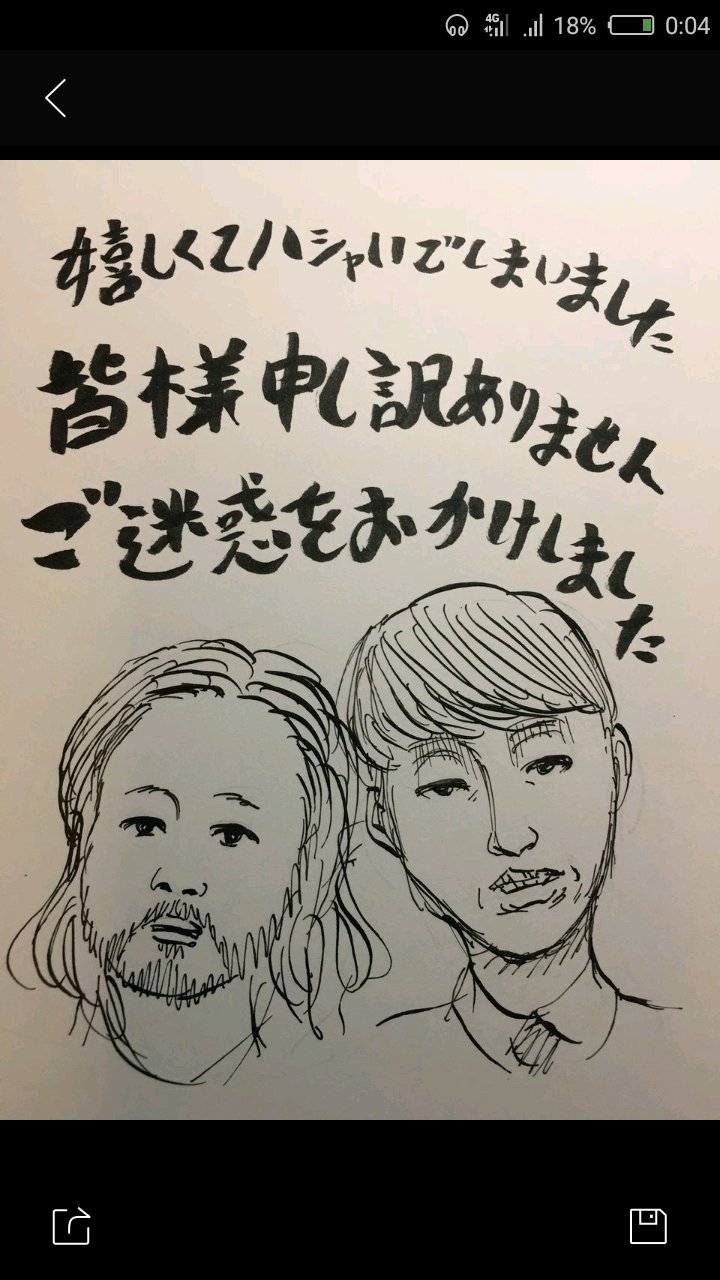 4G 18% 0:04
嬉しくてハシャいでしまいました
皆様申し訳ありません
ご迷惑をおかけしまし
た